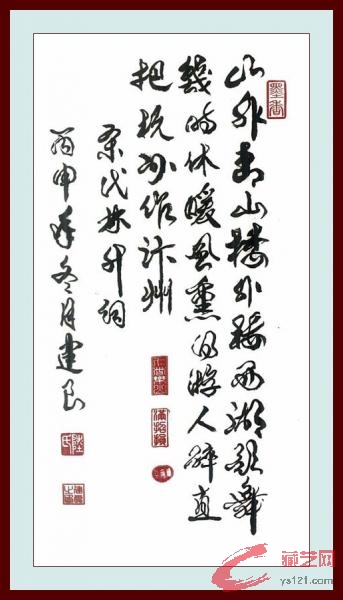 山外青山楼外楼西湖歌舞
幾时休暖風熏的游人醉直
把杭州作汴州
宋代林升词
丙申年冬月建良
墨香
满招损
藏艺网
ys121.com